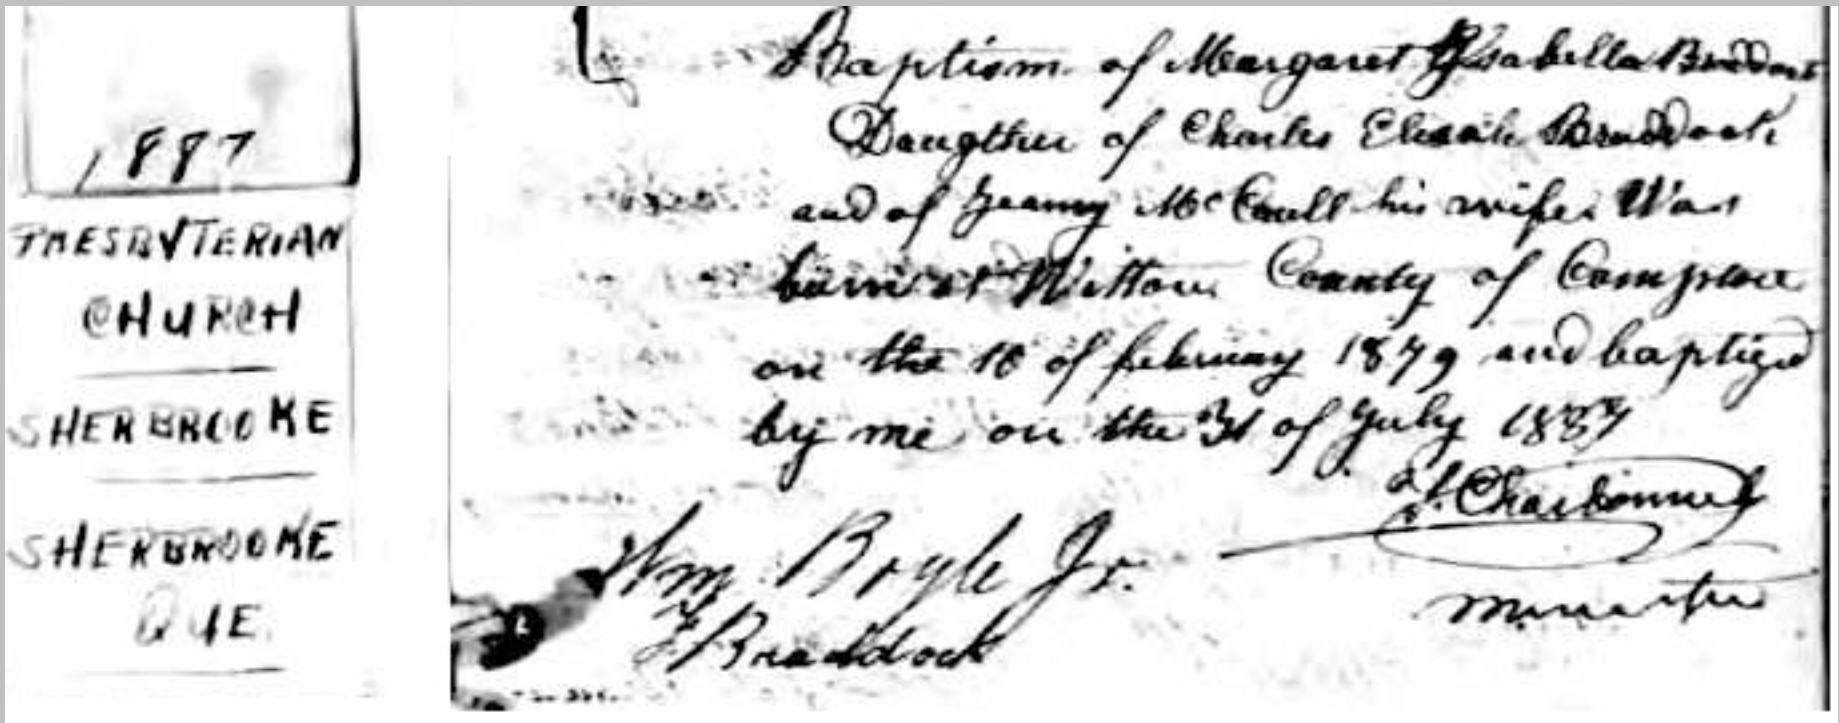 1887
PRESBYTERIAN
CHURCH
SHERBROOKE
SHERBROOKE
QUE.
Baptism of Margaret Isabella Braddock
Daughter of Charles Braddock
and of Jeanny his wife. Was
at County of
on the 18 of february 1879 and baptized
by me on the 31 of July 1887
Charbonnel
Wm Boyle Jr.
F Braddock
minister